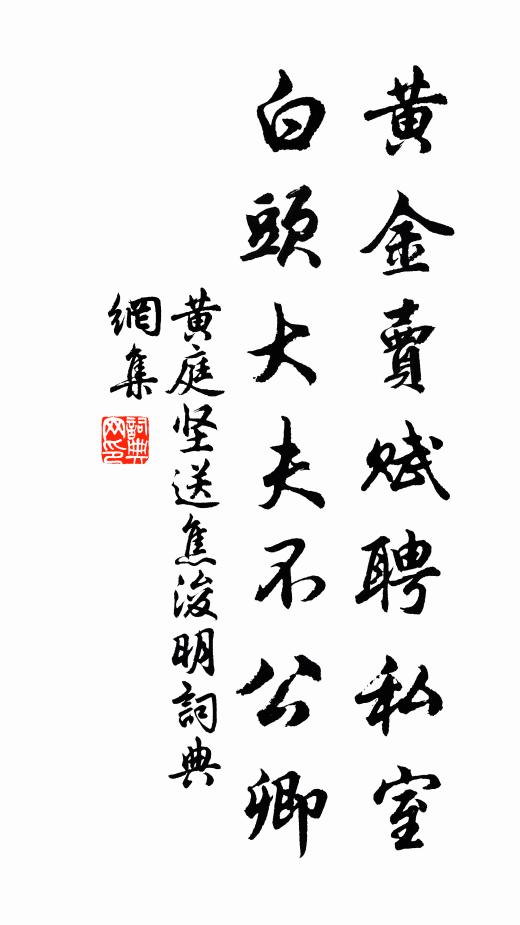 黃金賣賦聘私室
白頭大夫不公卿
黄庭坚送焦浚明詞典
網集
詞典
网印